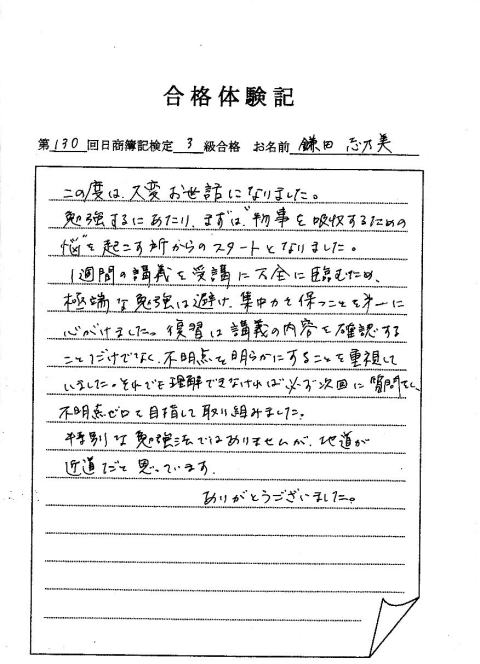 合格体験記
第130回日商簿記検定 3 級合格 お名前 鎌田 志乃美
この度は、大変お世話になりました。
勉強するにあたり、まずは"物事を吸収するための
悩"を起こす所からのスタートとなりました。
1週間の講義を受講に万全に臨むため、
極端な勉強は避け、集中力を保つことを第一に
心がけました。復習は講義の内容を確認する
ことだけでなく、不明点を明らかにすることを重視して
いました。それでも理解できなければ必ず次回に質問をし、
不明点ゼロを目指して取り組みました。
特別な勉強法ではありませんが、地道が
近道だと思っています。
ありがとうございました。